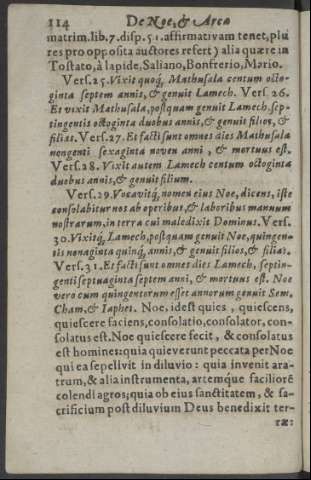 114 De Noe, & Arca
matrim. lib. 7. disp. 51. affirmativam tenet, plu
res pro opposita auctores refert) alia quære in
Tostato, à lapide, Saliano, Bonfrerio, Mario.
Vers. 25. Vixit quoq́, Mathusala centum octo-
ginta septem annis, & genuit Lamech. Vers. 26.
Et vixit Mathusala, postquam genuit Lamech, sep-
tingentis octoginta duobus annis, & genuit filios, &
filias. Vers. 27. Et facti sunt omnes dies Mathusala
nongenti sexaginta novem anni, & mortuus est.
Vers. 28. Vixit autem Lamech centum octoginta
duobus annis, & genuit filium.
Vers. 29. Vocavitq́, nomen eius Noe, dicens, iste
consolabitur nos ab operibus, & laboribus manuum
nostrarum, in terra cui maledixit Dominus. Vers.
30. Vixitq́, Lamech, postquam genuit Noe, quingen-
tis nonaginta quinq́, annis, & genuit filios, & filias.
Vers. 31. Et facti sunt omnes dies Lamech, septin-
genti septuaginta septem anni, & mortuus est. Noe
vero cum quingentorum esset annorum genuit Sem,
Cham, & Iaphet. Noe, id est quies, quiescens,
quiescere faciens, consolatio, consolator, con-
solatus est. Noe quiescere fecit, & consolatus
est homines: quia quieverunt peccata per Noe
qui ea sepelivit in diluvio: quia invenit ara-
trum, & alia instrumenta, artemq́ue faciliorẽ
colendi agros; quia ob eius sanctitatem, & sa-
crificium post diluvium Deus benedixit ter-
ræ: